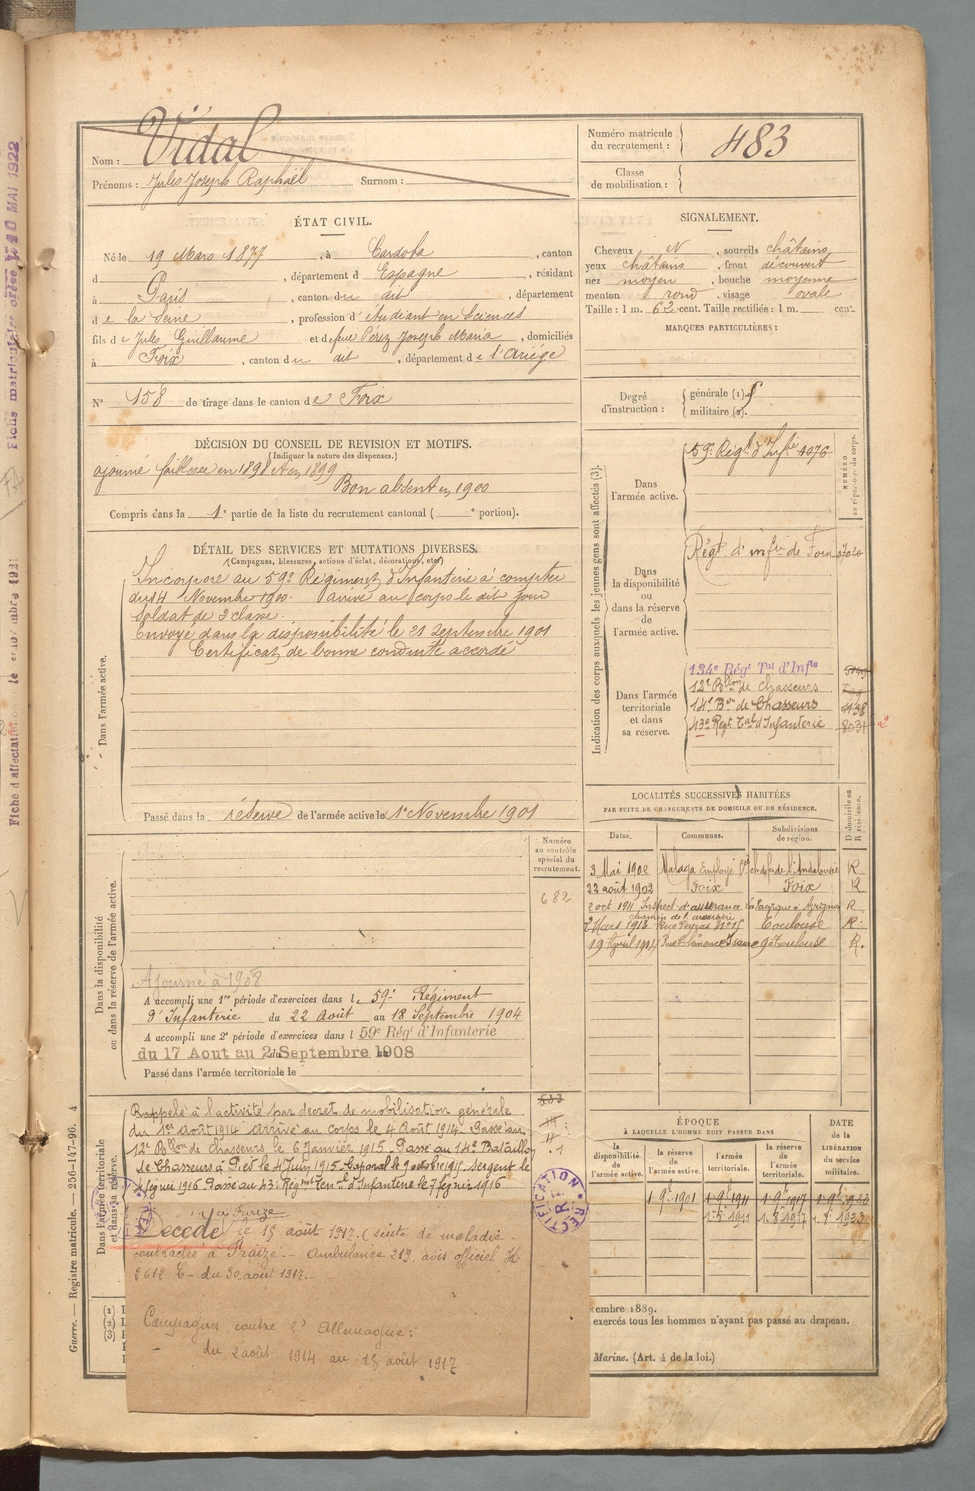 Nom : Vidal
Prénoms : Jules Joseph Raphaël Surnom :
Numéro matricule du recrutement : 483
Classe de mobilisation :
ÉTAT CIVIL.
Né le 19 Mars 1877, à Cordoba, canton
d , département d Espagne, résidant
à Paris, canton du dit, département
de la Seine, profession d'étudiant en Sciences
fils de Jules Guillaume et de feue Pérez Joseph Maria, domiciliés
à Foix, canton du dit, département de l'Ariége
N° 158 de tirage dans le canton de Foix
SIGNALEMENT.
Cheveux N, sourcils châtains
yeux châtains, front découvert
nez moyen, bouche moyenne
menton rond, visage ovale
Taille : 1 m. 62 cent. Taille rectifiée : 1 m. cent.
MARQUES PARTICULIÈRES :
Degré d'instruction : générale (1)
militaire (2).
DÉCISION DU CONSEIL DE REVISION ET MOTIFS.
(Indiquer la nature des dispenses.)
ajourné faiblesse en 1898 et en 1899
Bon absent en 1900
Compris dans la 1e partie de la liste du recrutement cantonal ( e portion).
DÉTAIL DES SERVICES ET MUTATIONS DIVERSES.
(Campagnes, blessures, actions d'éclat, décorations, etc.)
Dans l'armée active.
Incorporé au 59e Régiment d'Infanterie à compter
du 14 Novembre 1900. Arrivé au corps le dit jour
Soldat de 2 classe.
Envoyé dans la disponibilité le 21 Septembre 1901
Certificat de bonne conduite accordé
Passé dans la réserve de l'armée active le 1er Novembre 1901
Indication des corps auxquels les jeunes gens sont affectés (3).
NUMÉRO au répertoire du corps.
Dans l'armée active.
59e Régt d'Infie 4076
Dans la disponibilité ou dans la réserve de l'armée active.
Régt d'infie de Foix
Dans l'armée territoriale et dans sa réserve.
134e Régt Tal d'Infie
12e Bllon de Chasseurs
14e Bon de Chasseurs 4138
43e Regt Tal d'Infanterie 8031
LOCALITÉS SUCCESSIVES HABITÉES
PAR SUITE DE CHANGEMENTS DE DOMICILE OU DE RÉSIDENCE.
Dates. Communes. Subdivisions de région. D domicile ou R résidence.
3 Mai 1902 Malaga Employé R
22 août 1902 Foix Foix R
2 oct 1911 Inspect. d'assurance R
Mars 1913 Rue Peyras N° 15 Toulouse R
19 Avril 1914 Rue Clémence Isaure 9 Toulouse R.
Dans la disponibilité ou dans la réserve de l'armée active.
Numéro au contrôle spécial du recrutement.
682
Ajourné à 1908
A accompli une 1re période d'exercices dans le 59e Régiment
d'Infanterie du 22 Août au 18 Septembre 1904
A accompli une 2e période d'exercices dans l 59e Régt d'Infanterie
du 17 Aout au 2 Septembre 1908
Passé dans l'armée territoriale le
Dans l'armée territoriale et dans sa réserve.
Rappelé à l'activité par décret de mobilisation générale
du 1er Août 1914 arrivé au corps le 4 Août 1914. Passé au
12e Bllon de Chasseurs le 6 Janvier 1915. Passé au 14e Bataillon
de Chasseurs à Pied le 4 Juin 1915 Caporal le 9 octobre 1915 sergent le
4 février 1916 Passé au 43e Régiment Terral d'Infanterie le 7 février 1916
Décédé le 15 août 1917. (suite de maladie
contractée à Fraize. - ambulance 213, avis officiel
2612 C- du 30 août 1917.-
Campagnes contre l'Allemagne :
du 2 août 1914 au 15 août 1917
RECTIFICATION
ÉPOQUE
À LAQUELLE L'HOMME DOIT PASSER DANS
la disponibilité de l'armée active. la réserve de l'armée active. l'armée territoriale. la réserve de l'armée territoriale.
DATE de la LIBÉRATION du service militaire.
1 9bre 1901 1 9bre 1911 1 9bre 1917 1 9bre 1923
cembre 1889.
exercés tous les hommes n'ayant pas passé au drapeau.
Marine. (Art. 4 de la loi.)
Guerre. — Registre matricule. — 256-147-96. 4